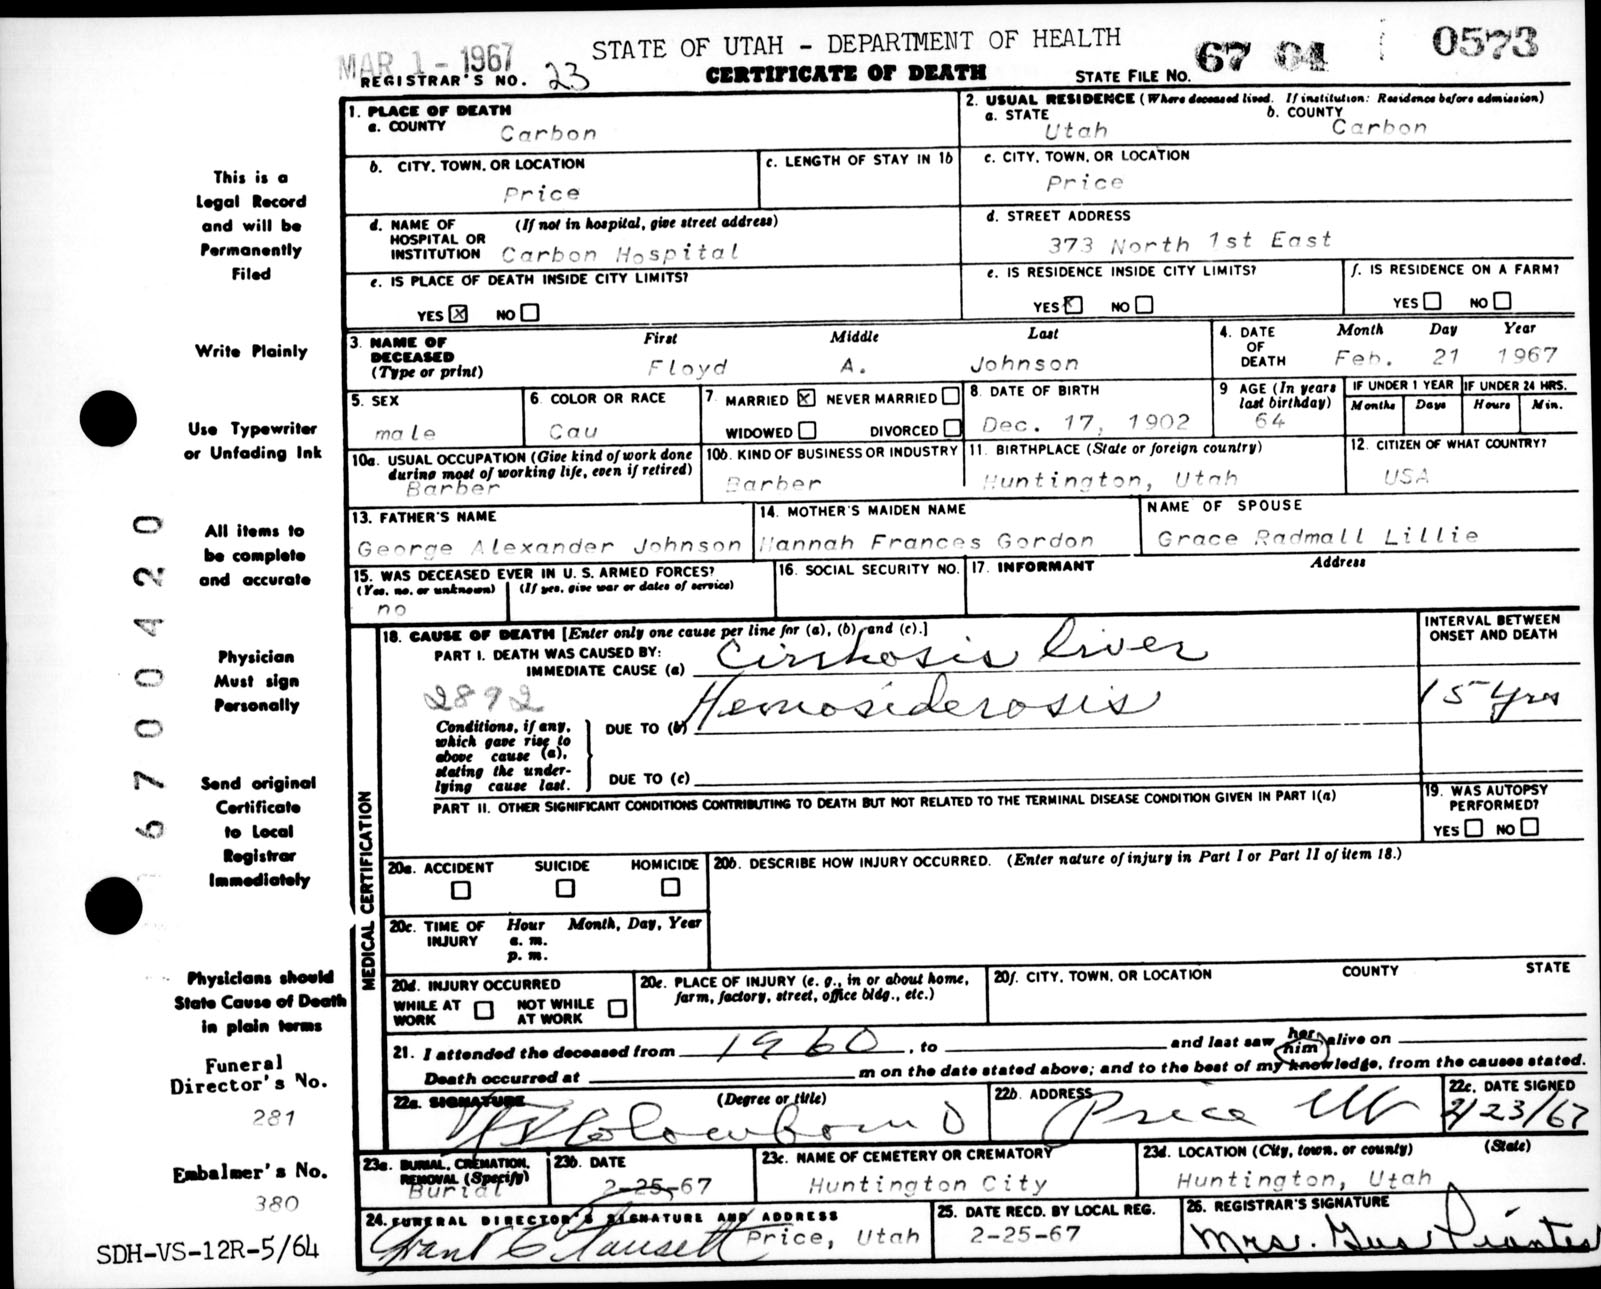 MAR 1 - 1967
STATE OF UTAH - DEPARTMENT OF HEALTH
67 04 0573
REGISTRAR'S NO. 23
CERTIFICATE OF DEATH
STATE FILE NO.
This is a
Legal Record
and will be
Permanently
Filed
Write Plainly
Use Typewriter
or Unfading Ink
All items to
be complete
and accurate
Physician
Must sign
Personally
Send original
Certificate
to Local
Registrar
Immediately
Physicians should
State Cause of Death
in plain terms
Funeral
Director's No.
281
Embalmer's No.
380
SDH-VS-12R-5/64
6700420
1. PLACE OF DEATH
a. COUNTY
Carbon
2. USUAL RESIDENCE (Where deceased lived. If institution: Residence before admission)
a. STATE
Utah
b. COUNTY
Carbon
b. CITY, TOWN, OR LOCATION
Price
c. LENGTH OF STAY IN 1b
c. CITY, TOWN, OR LOCATION
Price
d. NAME OF HOSPITAL OR INSTITUTION
(If not in hospital, give street address)
Carbon Hospital
d. STREET ADDRESS
373 North 1st East
e. IS PLACE OF DEATH INSIDE CITY LIMITS?
YES X NO
e. IS RESIDENCE INSIDE CITY LIMITS?
YES X NO
f. IS RESIDENCE ON A FARM?
YES NO
3. NAME OF DECEASED (Type or print)
First Middle Last
Floyd A. Johnson
4. DATE OF DEATH
Month Day Year
Feb. 21 1967
5. SEX
male
6. COLOR OR RACE
Cau
7. MARRIED X NEVER MARRIED
WIDOWED DIVORCED
8. DATE OF BIRTH
Dec. 17, 1902
9 AGE (In years last birthday)
64
IF UNDER 1 YEAR
Months Days
IF UNDER 24 HRS.
Hours Min.
10a. USUAL OCCUPATION (Give kind of work done
during most of working life, even if retired)
Barber
10b. KIND OF BUSINESS OR INDUSTRY
Barber
11. BIRTHPLACE (State or foreign country)
Huntington, Utah
12. CITIZEN OF WHAT COUNTRY?
USA
13. FATHER'S NAME
George Alexander Johnson
14. MOTHER'S MAIDEN NAME
Hannah Frances Gordon
NAME OF SPOUSE
Grace Radmall Lillie
15. WAS DECEASED EVER IN U. S. ARMED FORCES?
(Yes, no, or unknown) (If yes, give war or dates of service)
no
16. SOCIAL SECURITY NO.
17. INFORMANT Address
MEDICAL CERTIFICATION
18. CAUSE OF DEATH [Enter only one cause per line for (a), (b) and (c).]
PART I. DEATH WAS CAUSED BY:
IMMEDIATE CAUSE (a) Cirrhosis liver
INTERVAL BETWEEN
ONSET AND DEATH
2892
DUE TO (b) Hemosiderosis
15 yrs
Conditions, if any,
which gave rise to
above cause (a),
stating the under-
lying cause last.
DUE TO (c)
PART II. OTHER SIGNIFICANT CONDITIONS CONTRIBUTING TO DEATH BUT NOT RELATED TO THE TERMINAL DISEASE CONDITION GIVEN IN PART I(a)
19. WAS AUTOPSY PERFORMED?
YES NO
20a. ACCIDENT SUICIDE HOMICIDE
20b. DESCRIBE HOW INJURY OCCURRED. (Enter nature of injury in Part I or Part II of item 18.)
20c. TIME OF INJURY
Hour Month, Day, Year
a. m.
p. m.
20d. INJURY OCCURRED
WHILE AT WORK NOT WHILE AT WORK
20e. PLACE OF INJURY (e. g., in or about home,
farm, factory, street, office bldg., etc.)
20f. CITY, TOWN, OR LOCATION COUNTY STATE
21. I attended the deceased from 1960, to and last saw her him alive on
Death occurred at m on the date stated above; and to the best of my knowledge, from the causes stated.
22a. SIGNATURE (Degree or title)
22b. ADDRESS
Price Ut
22c. DATE SIGNED
2/23/67
23a. BURIAL, CREMATION, REMOVAL (Specify)
Burial
23b. DATE
2-25-67
23c. NAME OF CEMETERY OR CREMATORY
Huntington City
23d. LOCATION (City, town, or county) (State)
Huntington, Utah
24. FUNERAL DIRECTOR'S SIGNATURE AND ADDRESS
Price, Utah
25. DATE RECD. BY LOCAL REG.
2-25-67
26. REGISTRAR'S SIGNATURE
Mrs. Gus